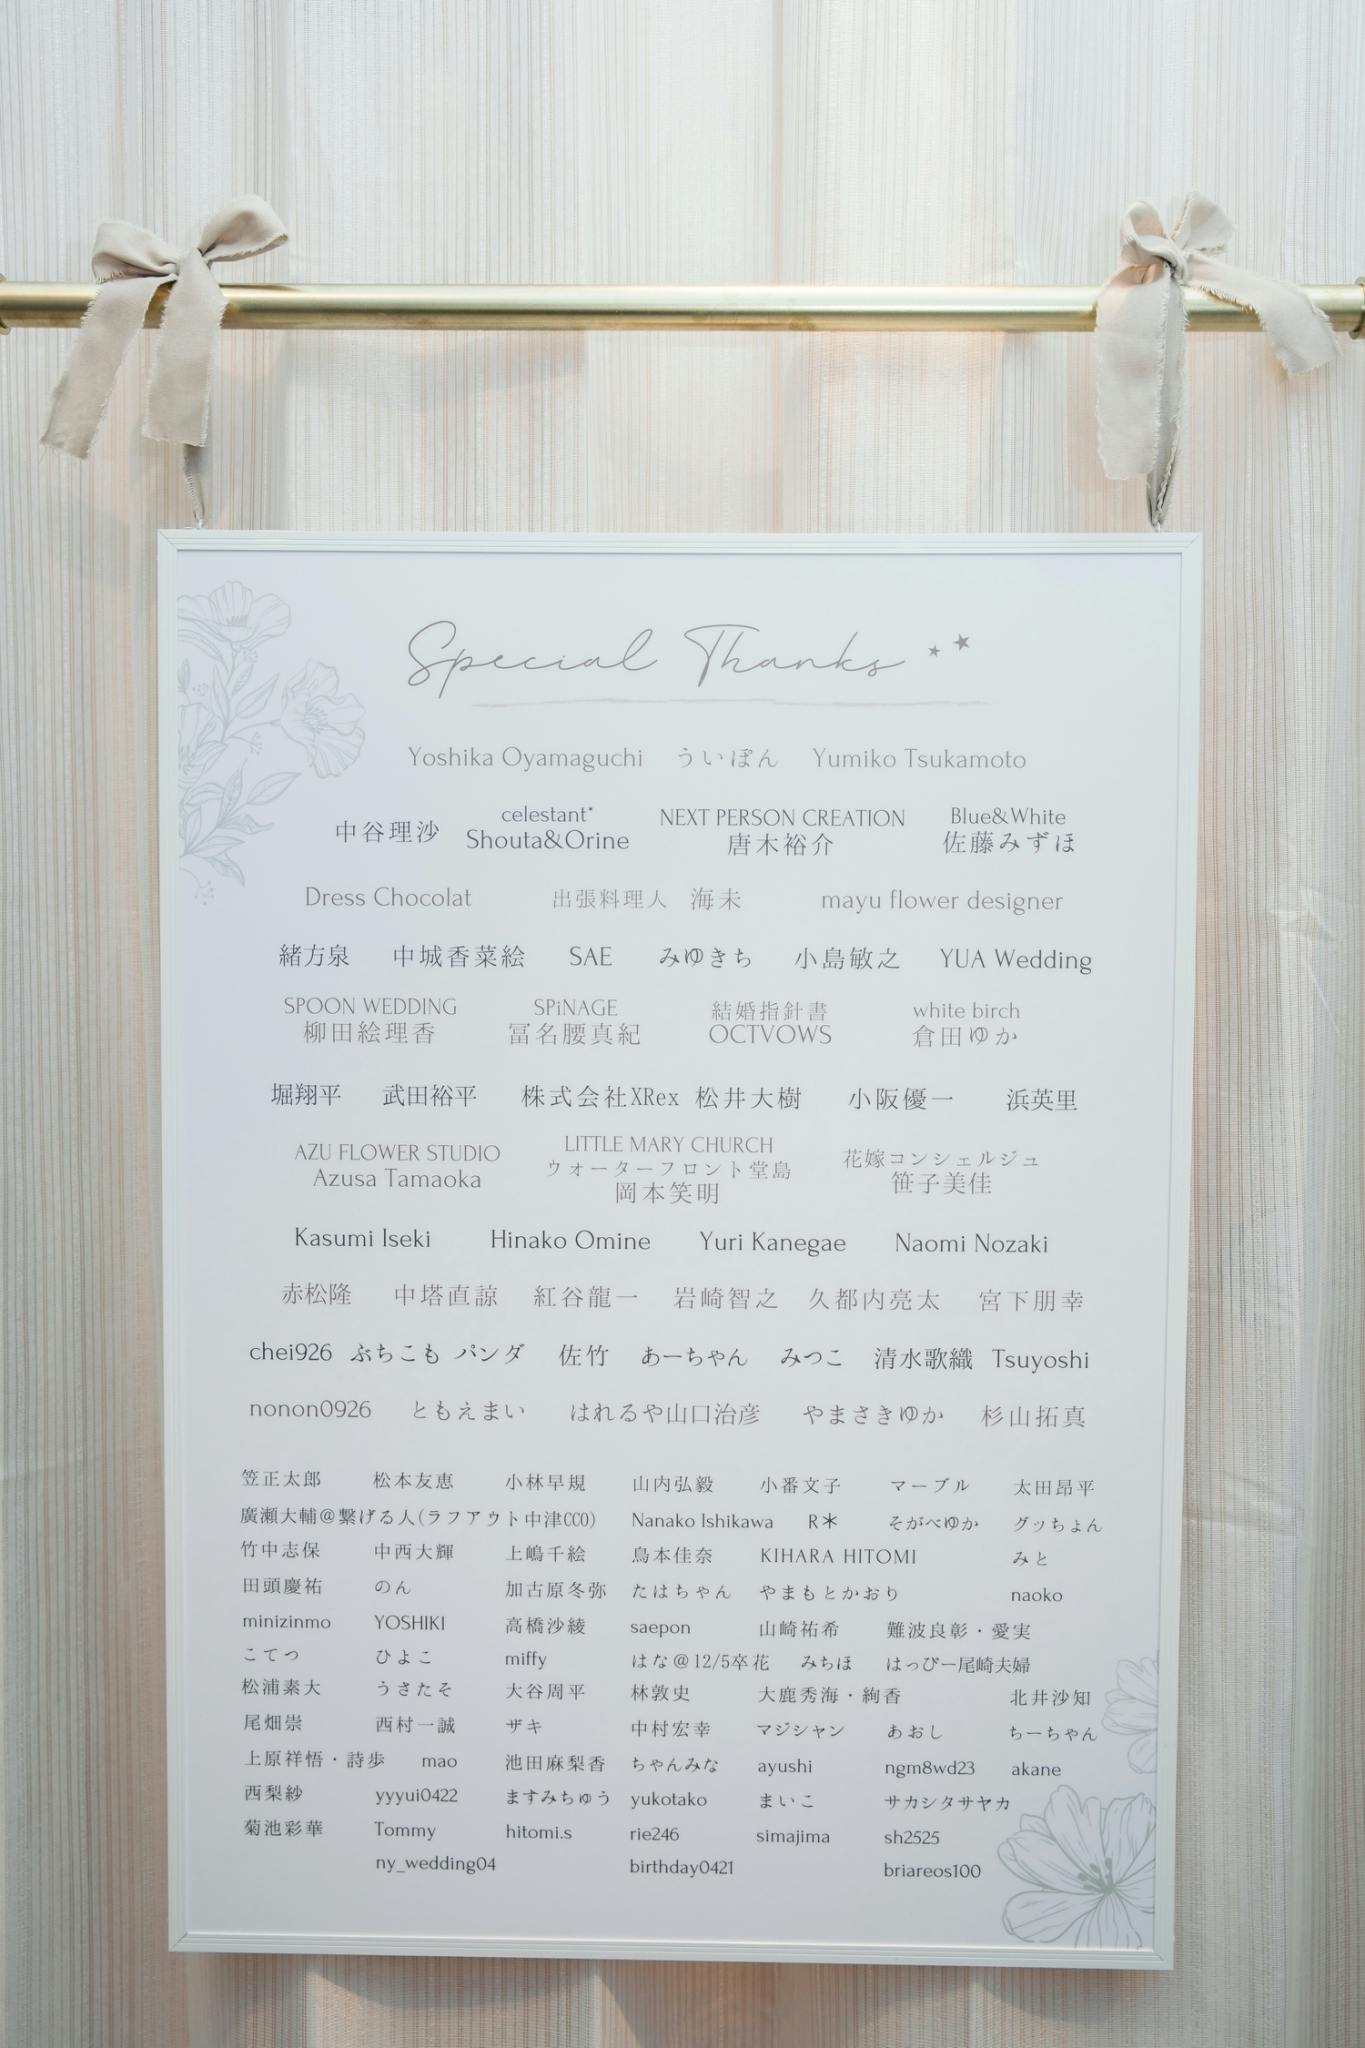 Special Thanks
Yoshika Oyamaguchi ういぽん Yumiko Tsukamoto
中谷理沙 celestant* Shouta&Orine NEXT PERSON CREATION 唐木裕介 Blue&White 佐藤みずほ
Dress Chocolat 出張料理人 海未 mayu flower designer
緒方泉 中城香菜絵 SAE みゆきち 小島敏之 YUA Wedding
SPOON WEDDING 柳田絵理香 SPiNAGE 冨名腰真紀 結婚指針書 OCTVOWS white birch 倉田ゆか
堀翔平 武田裕平 株式会社XRex 松井大樹 小阪優一 浜英里
AZU FLOWER STUDIO Azusa Tamaoka LITTLE MARY CHURCH ウォーターフロント堂島 岡本笑明 花嫁コンシェルジュ 笹子美佳
Kasumi Iseki Hinako Omine Yuri Kanegae Naomi Nozaki
赤松隆 中塔直諒 紅谷龍一 岩崎智之 久都内亮太 宮下朋幸
chei926 ぷちこも パンダ 佐竹 あーちゃん みつこ 清水歌織 Tsuyoshi
nonon0926 ともえまい はれるや山口治彦 やまさきゆか 杉山拓真
笠正太郎 松本友恵 小林早規 山内弘毅 小番文子 マーブル 太田昂平
廣瀬大輔@繋げる人(ラフアウト中津CCO) Nanako Ishikawa R* そがべゆか グッちょん
竹中志保 中西大輝 上嶋千絵 鳥本佳奈 KIHARA HITOMI みと
田頭慶祐 のん 加古原冬弥 たはちゃん やまもとかおり naoko
minizinmo YOSHIKI 高橋沙綾 saepon 山崎祐希 難波良彰・愛実
こてつ ひよこ miffy はな@12/5卒花 みちほ はっぴー尾崎夫婦
松浦素大 うさたそ 大谷周平 林敦史 大鹿秀海・絢香 北井沙知
尾畑崇 西村一誠 ザキ 中村宏幸 マジシャン あおし ちーちゃん
上原祥悟・詩歩 mao 池田麻梨香 ちゃんみな ayushi ngm8wd23 akane
西梨紗 yyyui0422 ますみちゅう yukotako まいこ サカシタサヤカ
菊池彩華 Tommy hitomi.s rie246 simajima sh2525
ny_wedding04 birthday0421 briareos100